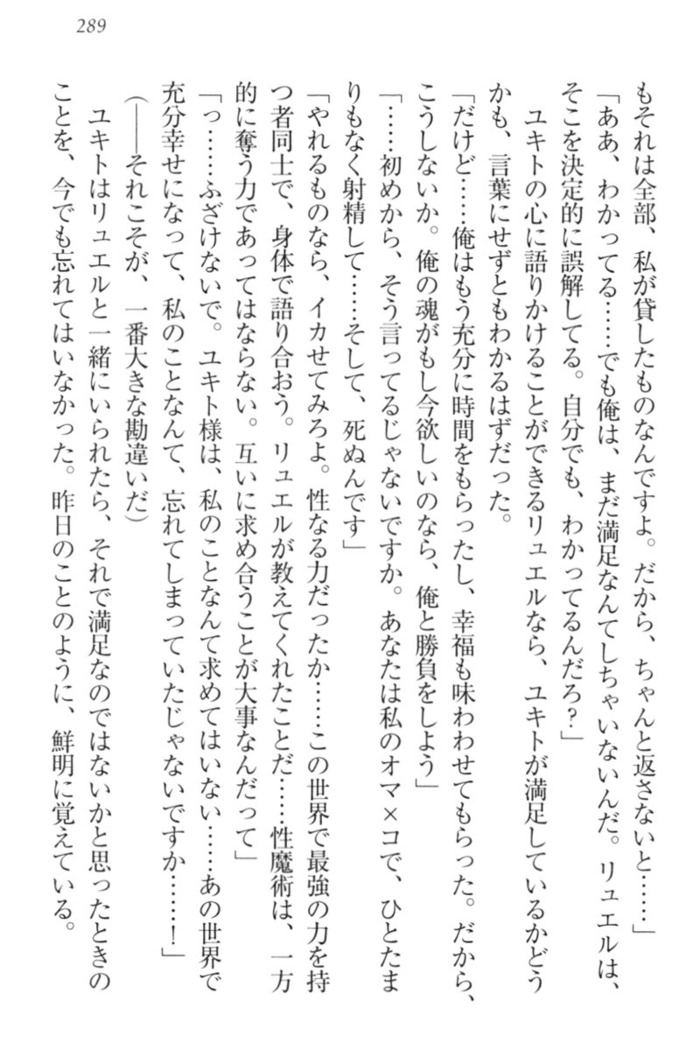 289
もそれは全部、私が貸したものなんですよ。だから、ちゃんと返さないと……」
「ああ、わかってる……でも俺は、まだ満足なんてしちゃいないんだ。リュエルは、
そこを決定的に誤解してる。自分でも、わかってるんだろ？」
　ユキトの心に語りかけることができるリュエルなら、ユキトが満足しているかどう
かも、言葉にせずともわかるはずだった。
「だけど……俺はもう充分に時間をもらったし、幸福も味わわせてもらった。だから、
こうしないか。俺の魂がもし今欲しいのなら、俺と勝負をしよう」
「……初めから、そう言ってるじゃないですか。あなたは私のオマ×コで、ひとたま
りもなく射精して……そして、死ぬんです」
「やれるものなら、イカせてみろよ。性なる力だったか……この世界で最強の力を持
つ者同士で、身体で語り合おう。リュエルが教えてくれたことだ……性魔術は、一方
的に奪う力であってはならない。互いに求め合うことが大事なんだって」
「っ……ふざけないで。ユキト様は、私のことなんて求めてはいない……あの世界で
充分幸せになって、私のことなんて、忘れてしまっていたじゃないですか……！」
（――それこそが、一番大きな勘違いだ）
　ユキトはリュエルと一緒にいられたら、それで満足なのではないかと思ったときの
ことを、今でも忘れてはいなかった。昨日のことのように、鮮明に覚えている。